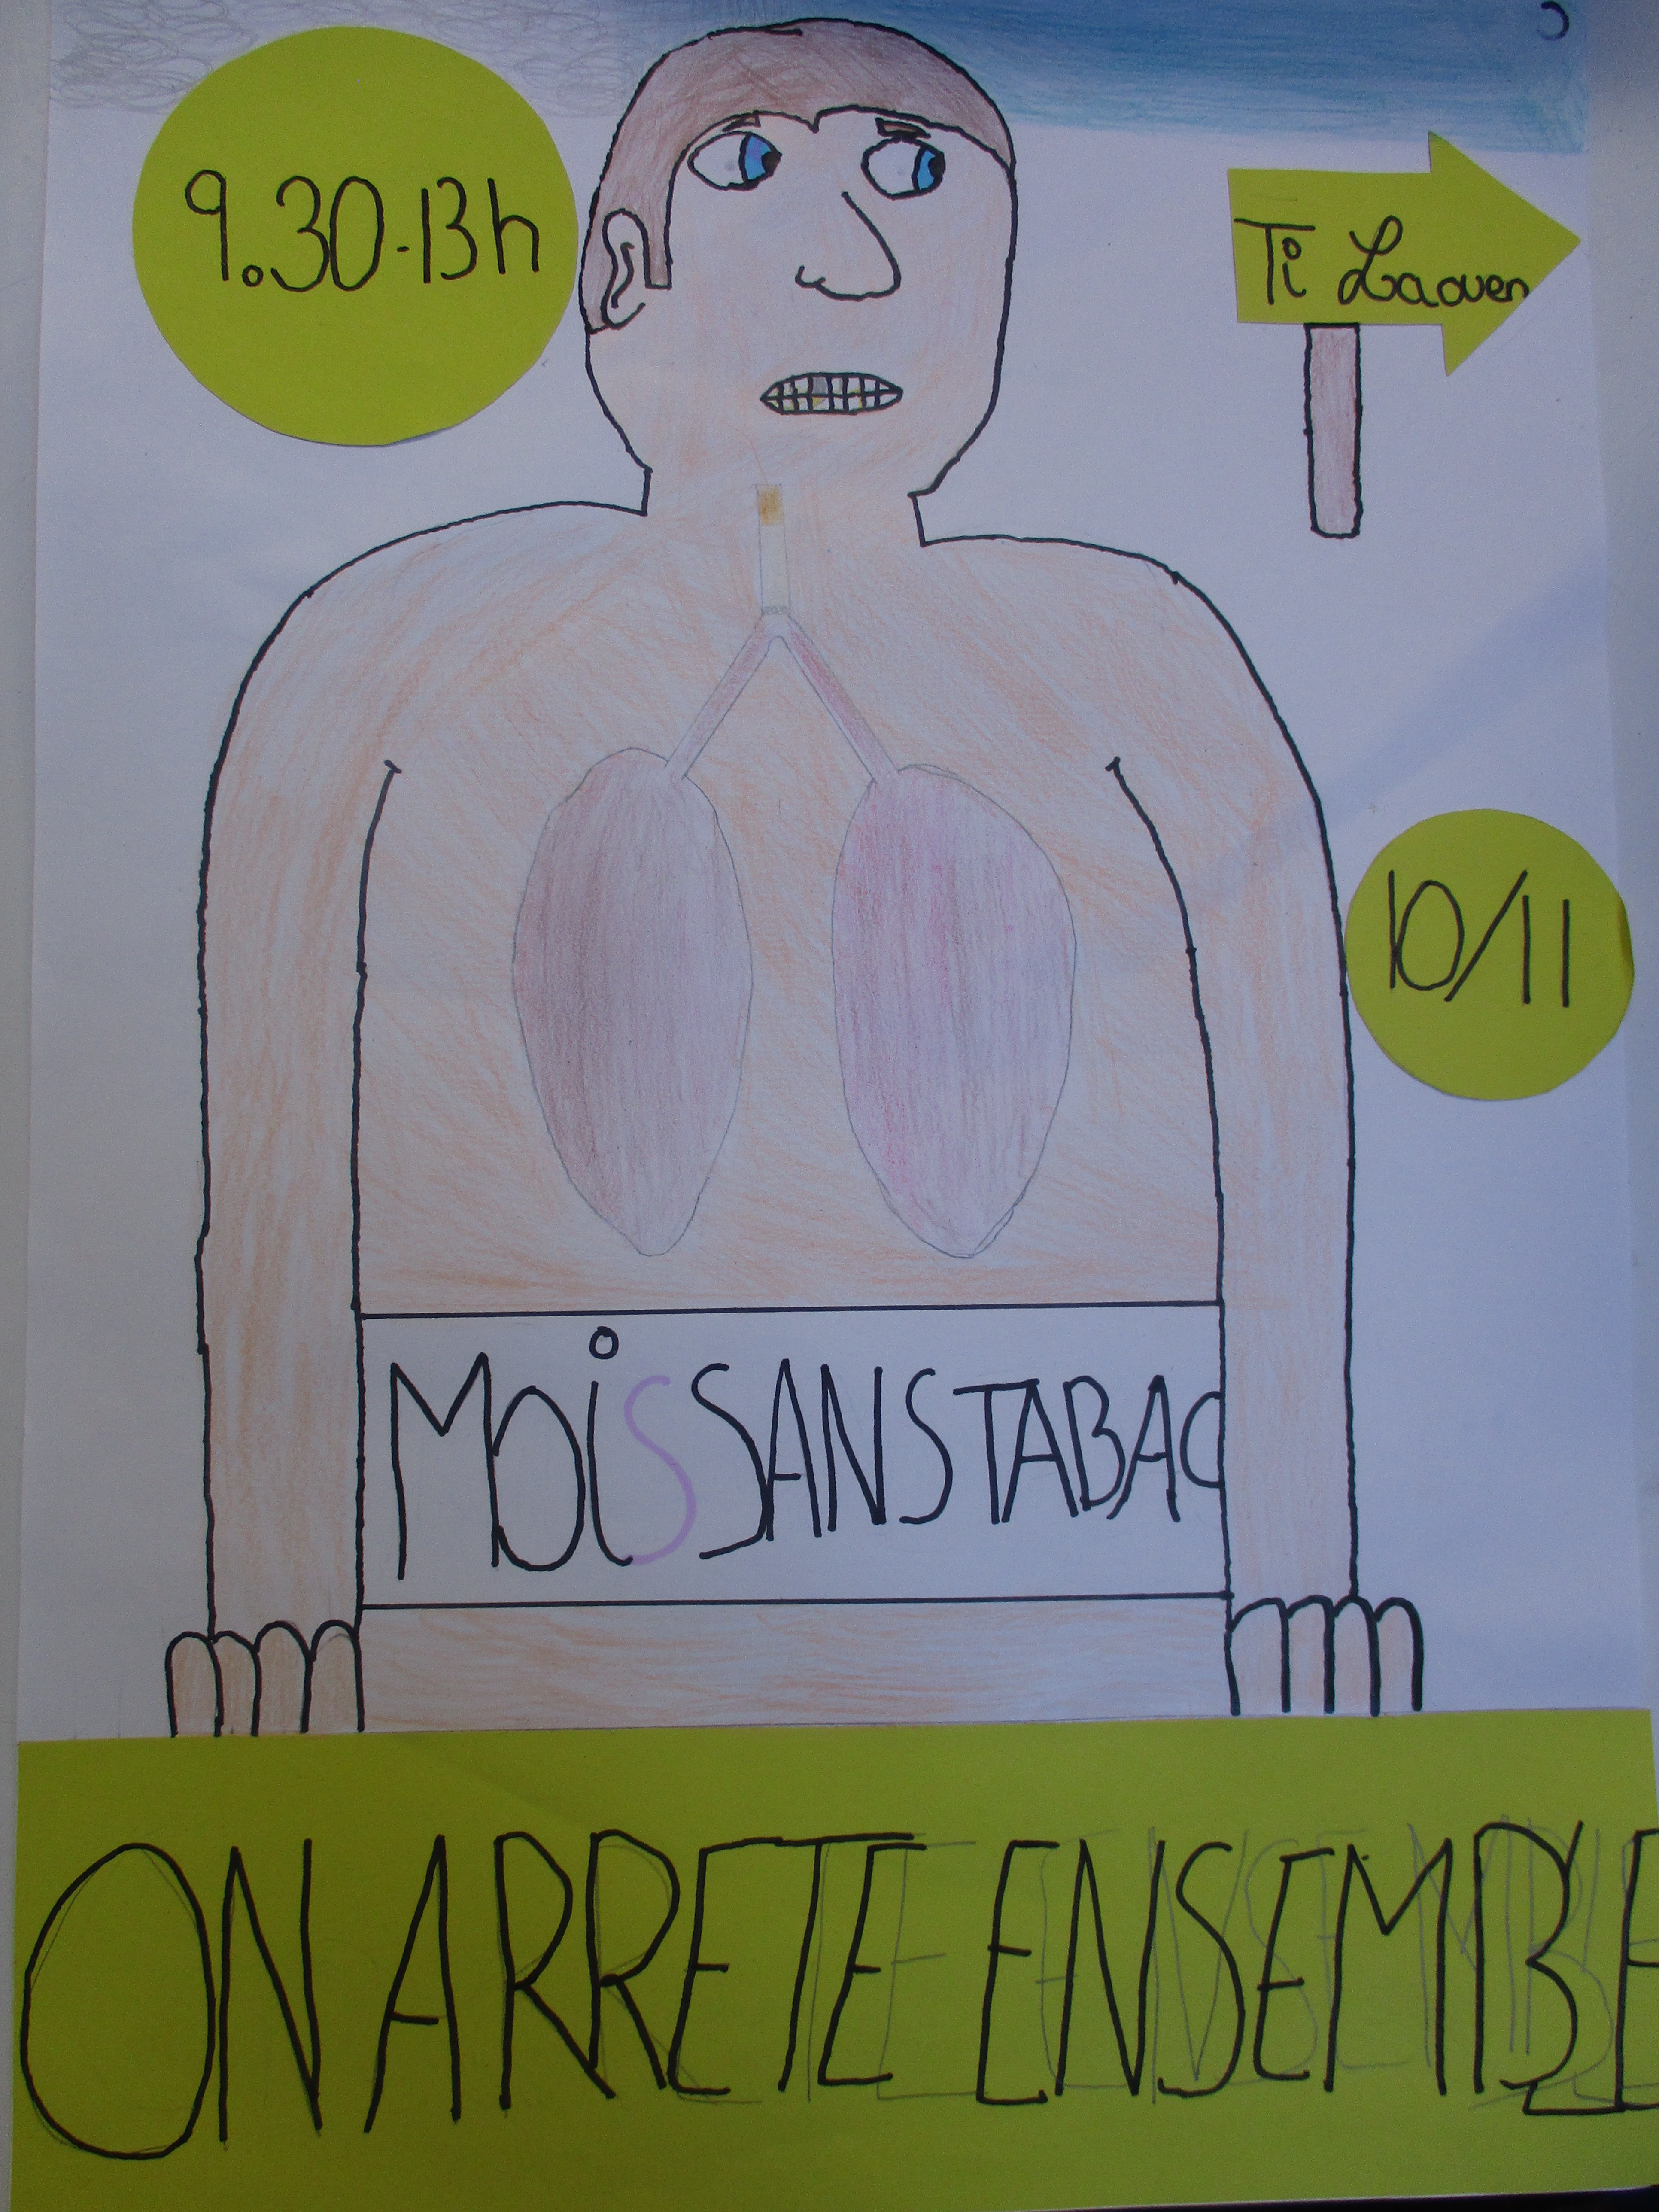 9.30-13h
Ti Laouen
10/11
MOiS SANS TABAC
ON ARRETE ENSEMBLE